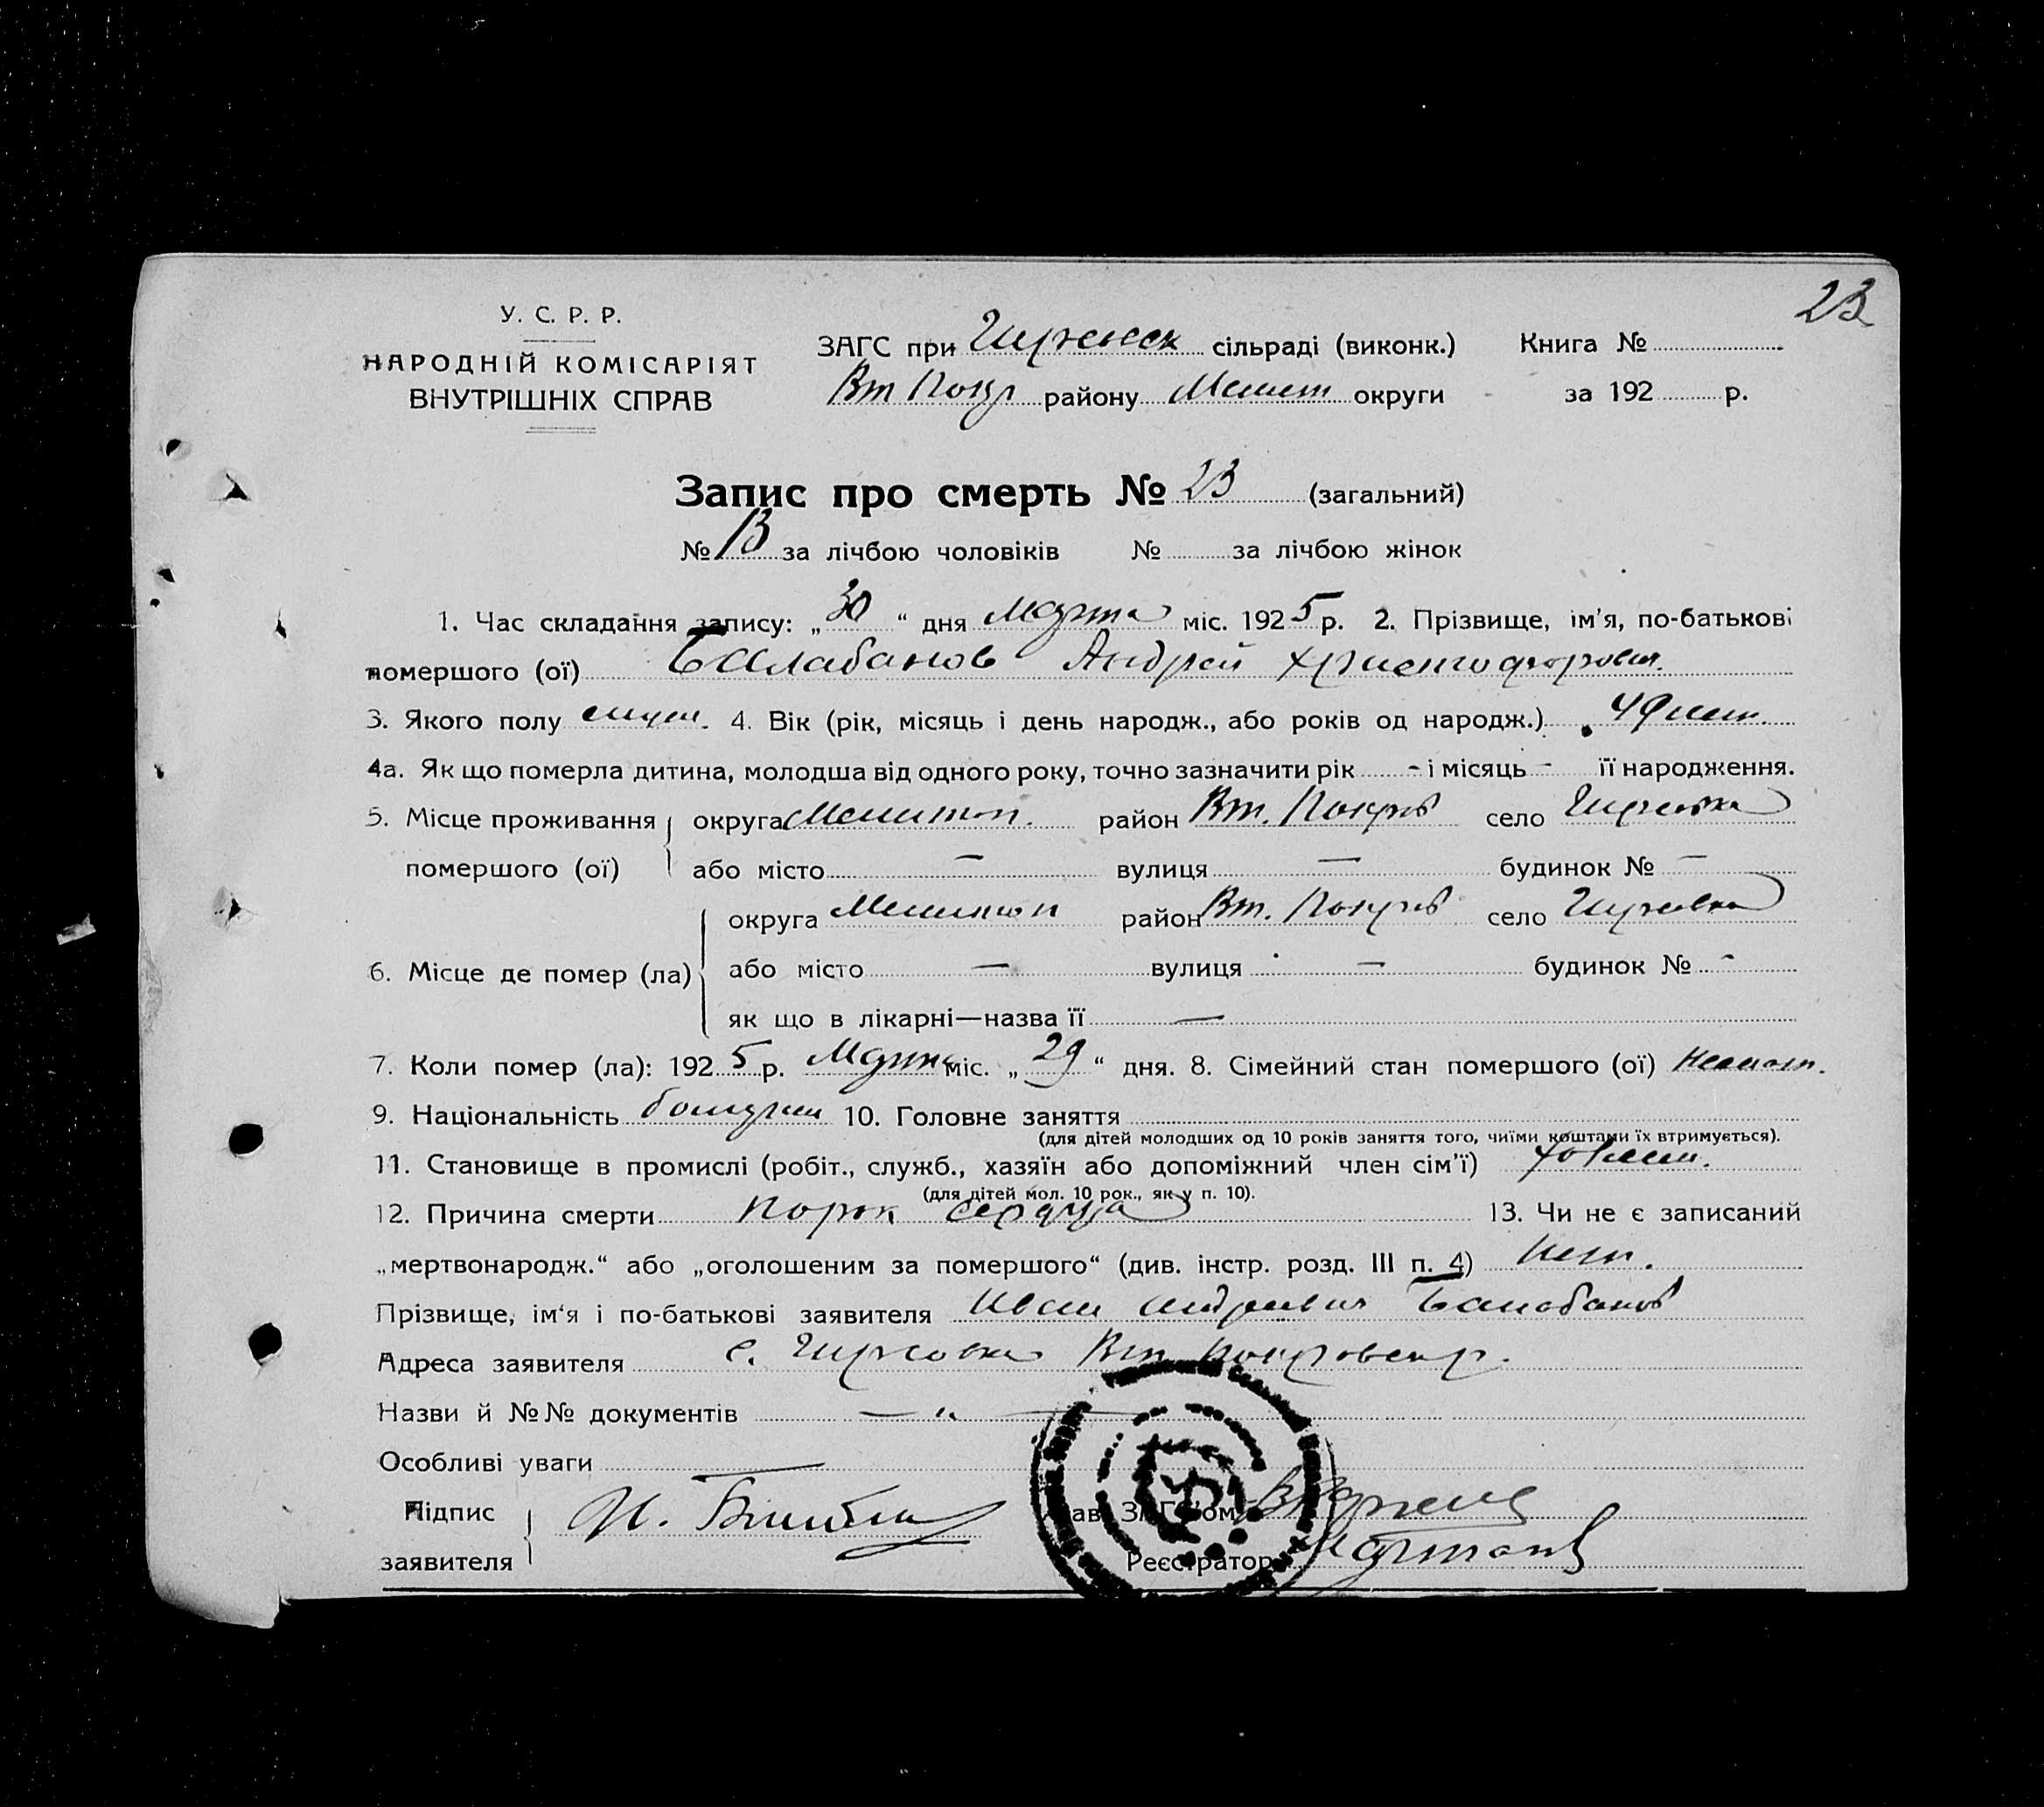 23
У. С. Р. Р.
НАРОДНІЙ КОМІСАРІЯТ
ВНУТРІШНІХ СПРАВ
ЗАГС при Гирсовск сільраді (виконк.) Книга №
Вт Покр району Мелит округи за 192 р.
Запис про смерть № 23 (загальний)
№ 13 за лічбою чоловіків № за лічбою жінок
1. Час складання запису: „30“ дня Марта міс. 1925 р. 2. Прізвище, ім'я, по-батькові
помершого (ої) Балабанов Андрей Христофорович.
3. Якого полу 4. Вік (рік, місяць і день народж., або років од народж.) 49 лет
4а. Як що померла дитина, молодша від одного року, точно зазначити рік - і місяць - її народження.
5. Місце проживання округа Мелитоп. район Вт. Покров село Гирсовка
помершого (ої) або місто — вулиця — будинок № —
округа Мелитоп район Вт. Покров село Гирсовка
6. Місце де помер (ла) або місто — вулиця — будинок № -
як що в лікарні—назва її —
7. Коли помер (ла): 1925 р. Марта міс. „29“ дня. 8. Сімейний стан помершого (ої)
9. Національність болгарин 10. Головне заняття
(для дітей молодших од 10 років заняття того, чиїми коштами їх втримується).
11. Становище в промислі (робіт., служб., хазяїн або допоміжний член сім'ї)
(для дітей мол. 10 рок., як у п. 10).
12. Причина смерти Порок сердца 13. Чи не є записаний
„мертвонародж.“ або „оголошеним за помершого“ (див. інстр. розд. III п. 4) Нет.
Прізвище, ім'я і по-батькові заявителя Иван Андреевич Балабанов
Адреса заявителя с. Гирсовка Вт Покровск р.
Назви й №№ документів — „ —
Особливі уваги
Підпис Зав. ЗАГС'ом
заявителя Реєстратор